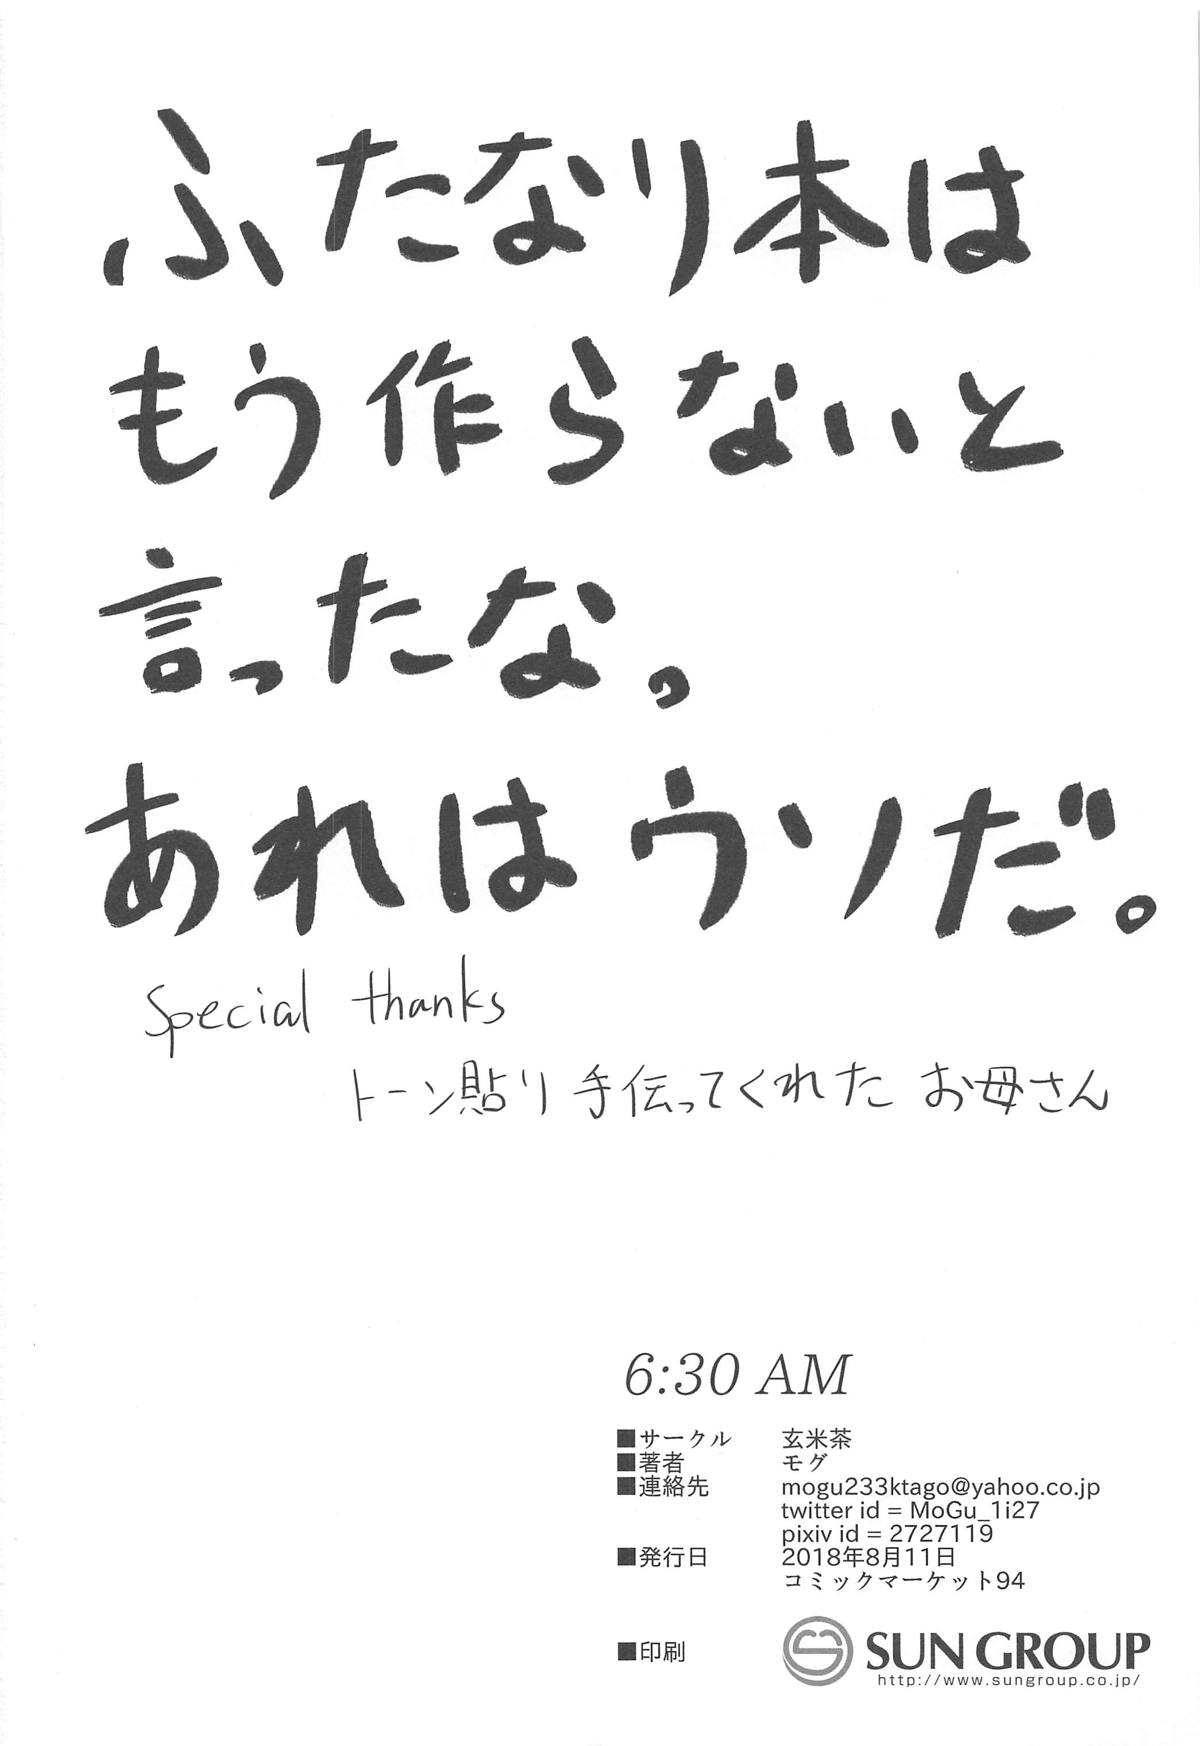 ふたなり本は
もう作らないと
言ったな。
あれはウソだ。
Special thanks
トーン貼り手伝ってくれた お母さん
6:30 AM
■サークル 玄米茶
■著者 モグ
■連絡先 mogu233ktago@yahoo.co.jp
twitter id = MoGu_1i27
pixiv id = 2727119
■発行日 2018年8月11日
コミックマーケット94
■印刷 SUN GROUP
http://www.sungroup.co.jp/